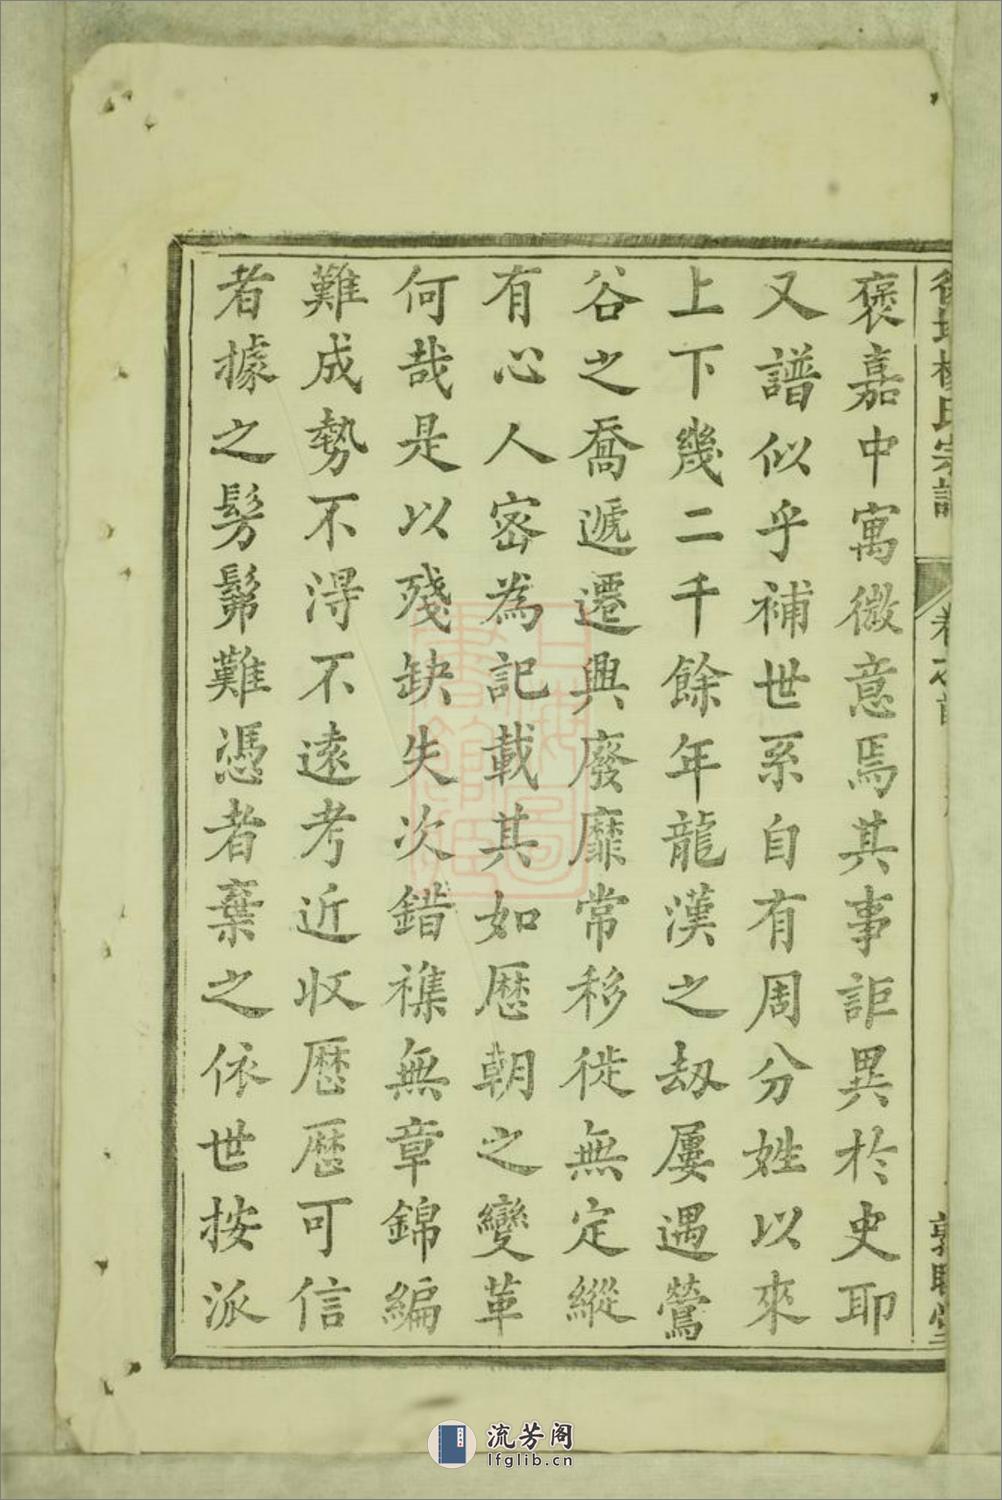 楊氏宗譜
卷之首
褒嘉中寓微意焉其事詎異於史耶
又譜似乎補世系自有周分姓以來
上下幾二千餘年龍漢之刼屢遇鶯
谷之喬遞遷興廢靡常移徙無定縱
有心人密為記載其如歴朝之變革
何哉是以殘缺失次錯襍無章錦編
難成勢不淂不逺考近収歴歴可信
者據之髣髴難憑者棄之依世按派
流芳阁
lfglib.cn